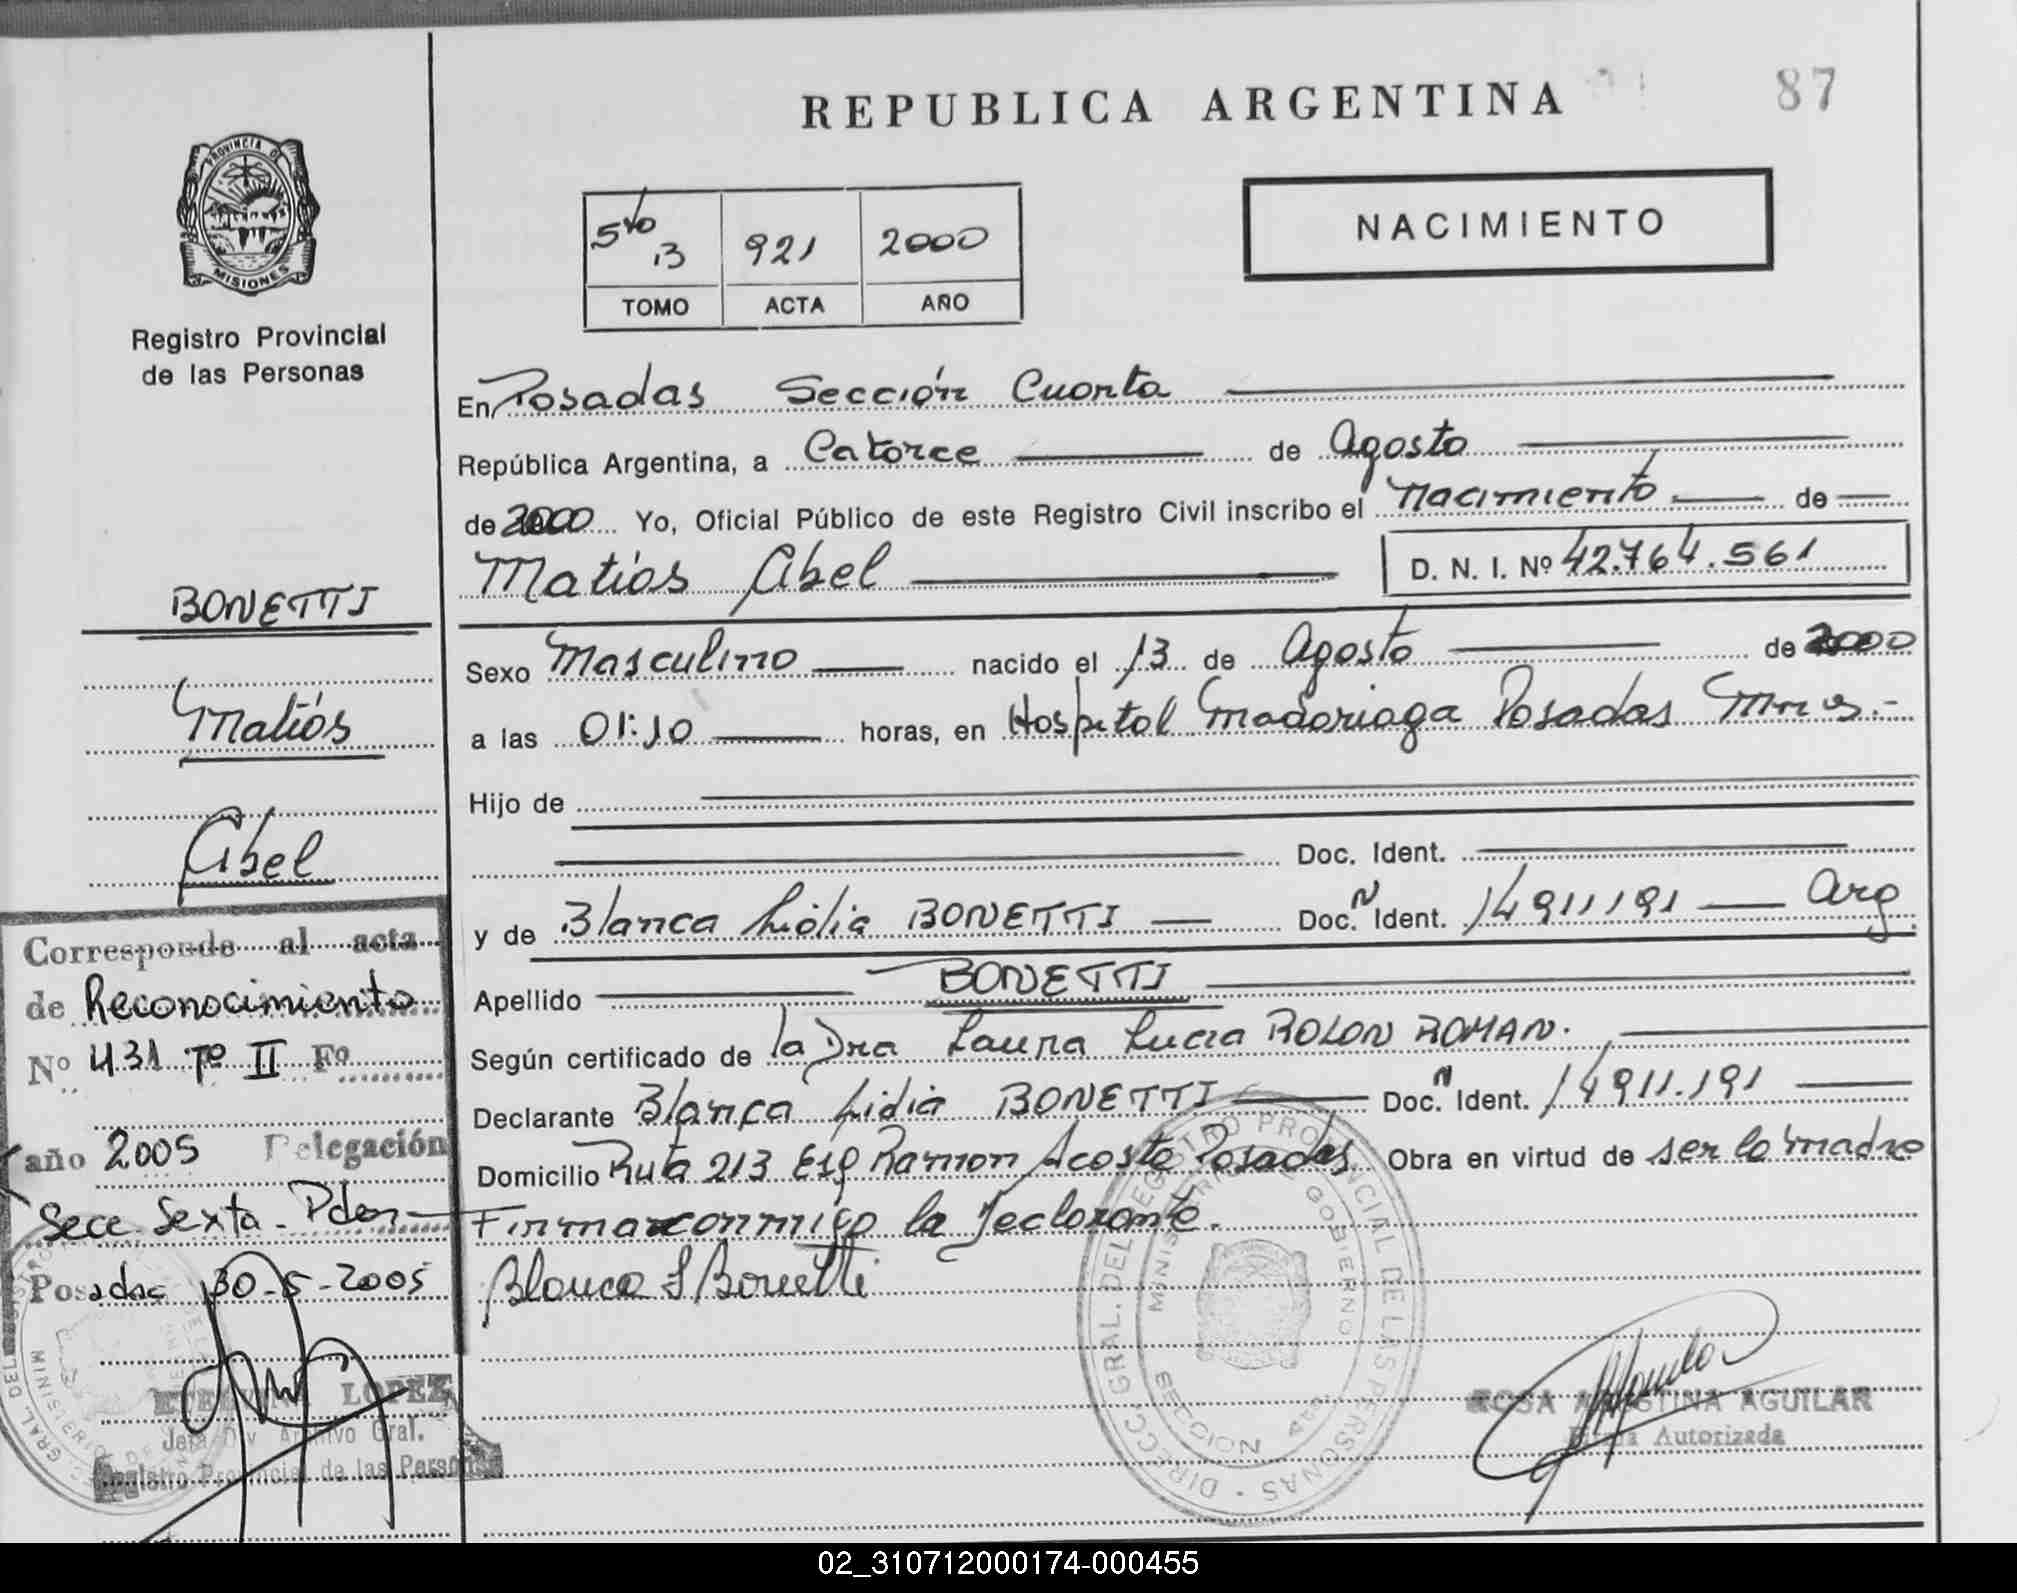 REPUBLICA ARGENTINA
87
PROVINCIA DE
MISIONES
Registro Provincial
de las Personas
5to 13 921 2000
TOMO ACTA AÑO
NACIMIENTO
En Posadas Sección Cuarta
República Argentina, a Catorce de Agosto
de 2000 Yo, Oficial Público de este Registro Civil inscribo el nacimiento de
Matías Abel D. N. I. Nº 42.764.561
Sexo Masculino nacido el 13 de Agosto de 2000
a las 01:10 horas, en Hospital Madariaga Posadas Mnes.-
Hijo de
Doc. Ident.
y de Blanca Lidia BONETTI Doc. N Ident. 14911191 Arg.
Apellido BONETTI
Según certificado de la Dra Laura Lucia ROLON ROMAN.
Declarante Blanca Lidia BONETTI Doc. N Ident. 14911.191
Domicilio Ruta 213 Esq Ramon Acosta Posadas Obra en virtud de ser la madre
Firma conmigo la declarante.
Blanca L Bonetti
BONETTI
Matías
Abel
Corresponde al acta
de Reconocimiento
Nº 431 Tº II Fº
año 2005 Delegación
Secc. Sexta - Pdas
Posadas 30-5-2005
LOPEZ
Jefa Div Archivo Gral.
Registro Provincial de las Personas
DIRECC. GRAL. DEL REGISTRO PROVINCIAL DE LAS PERSONAS
MINISTERIO DE GOBIERNO
SECCION 4ta
ROSA AGUSTINA AGUILAR
Firma Autorizada
02_310712000174-000455